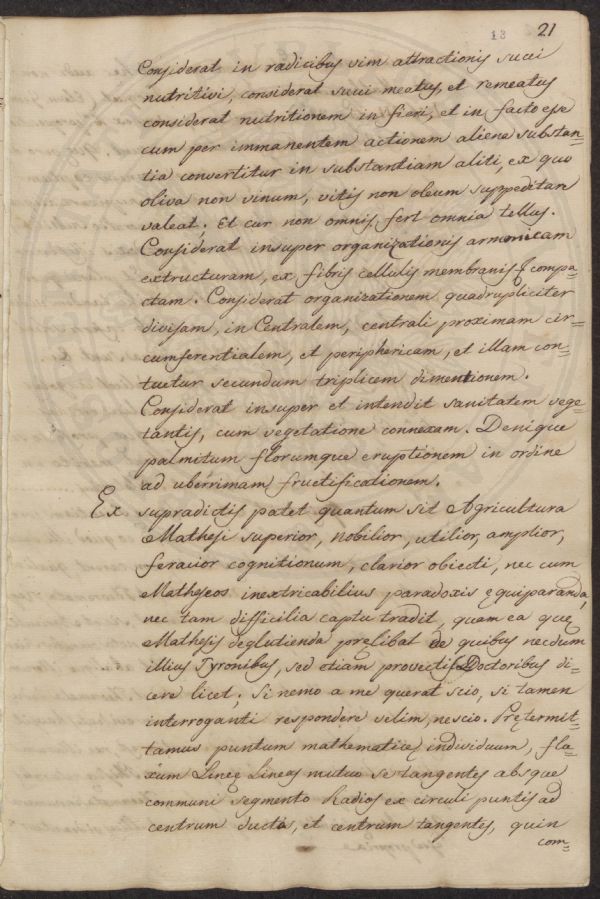 13 21
Considerat in radicibus vim attractionis succi
nutritivi, considerat succi meatus, et remeatus
considerat nutritionem in fieri, et in facto esse
cum per immanentem actionem aliene substan=
tia convertitur in substantiam aliti, ex quo
oliva non vinum, vitis non oleum suppeditare
valeat. Et cur non omnis fert omnia tellus.
Considerat insuper organizationis armonicam
extructuram, ex fibris cellulis membranisq compa=
ctam. Considerat organizationem quadrupliciter
divisam, in Centralem, centrali proximam cir=
cumferentialem, et periphericam, et illam con=
tuetur secundum triplicem dimentionem.
Considerat insuper et intendit sanitatem vege=
tantis, cum vegetatione connexam. Denique
palmitum florumque eruptionem in ordine
ad uberrimam fructificationem.
Ex supradictis patet quantum sit Agricultura
Mathesi superior, nobilior, utilior, amplior,
feracior cognitionum, clarior obiecti, nec cum
Matheseos inextricabilius paradoxis ęquiparanda,
nec tam difficilia captu tradit, quam ea quę
Mathesis deglutienda pręlibat de quibus necdum
illius Tyronibus, sed etiam provectis Doctoribus di=
cere licet; Si nemo a me querat scio, si tamen
interroganti respondere velim, nescio. Prętermit=
tamus puntum mathematicę individuum, fla=
xum Lineę Lineas mutuo se tangentes absque
communi segmento Radios ex circuli puntis ad
centrum ductos, et centrum tangentes, quin
com=